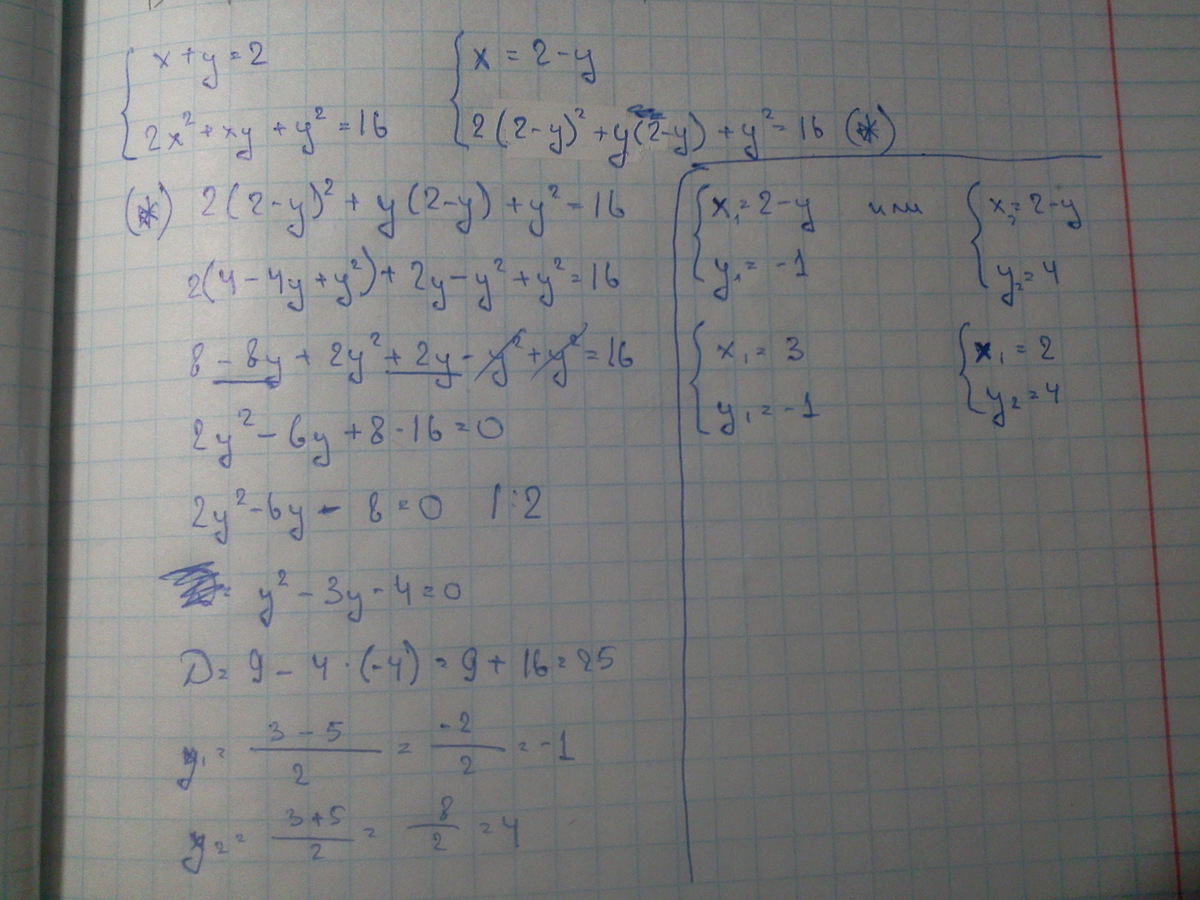 { x + y = 2
2x² + xy + y² = 16
{ x = 2 - y
2(2-y)² + y(2-y) + y² = 16 (*)
(*) 2(2-y)² + y(2-y) + y² = 16
2(4 - 4y + y²) + 2y - y² + y² = 16
8 - 8y + 2y² + 2y - y² + y² = 16
2y² - 6y + 8 - 16 = 0
2y² - 6y - 8 = 0 | : 2
y² - 3y - 4 = 0
D = 9 - 4 · (-4) = 9 + 16 = 25
y₁ = (3 - 5)/2 = -2/2 = -1
y₂ = (3+5)/2 = 8/2 = 4
{ x₁ = 2 - y или { x₂ = 2 - y
y₁ = -1 y₂ = 4
{ x₁ = 3 { x₁ = 2
y₁ = -1 y₂ = 4